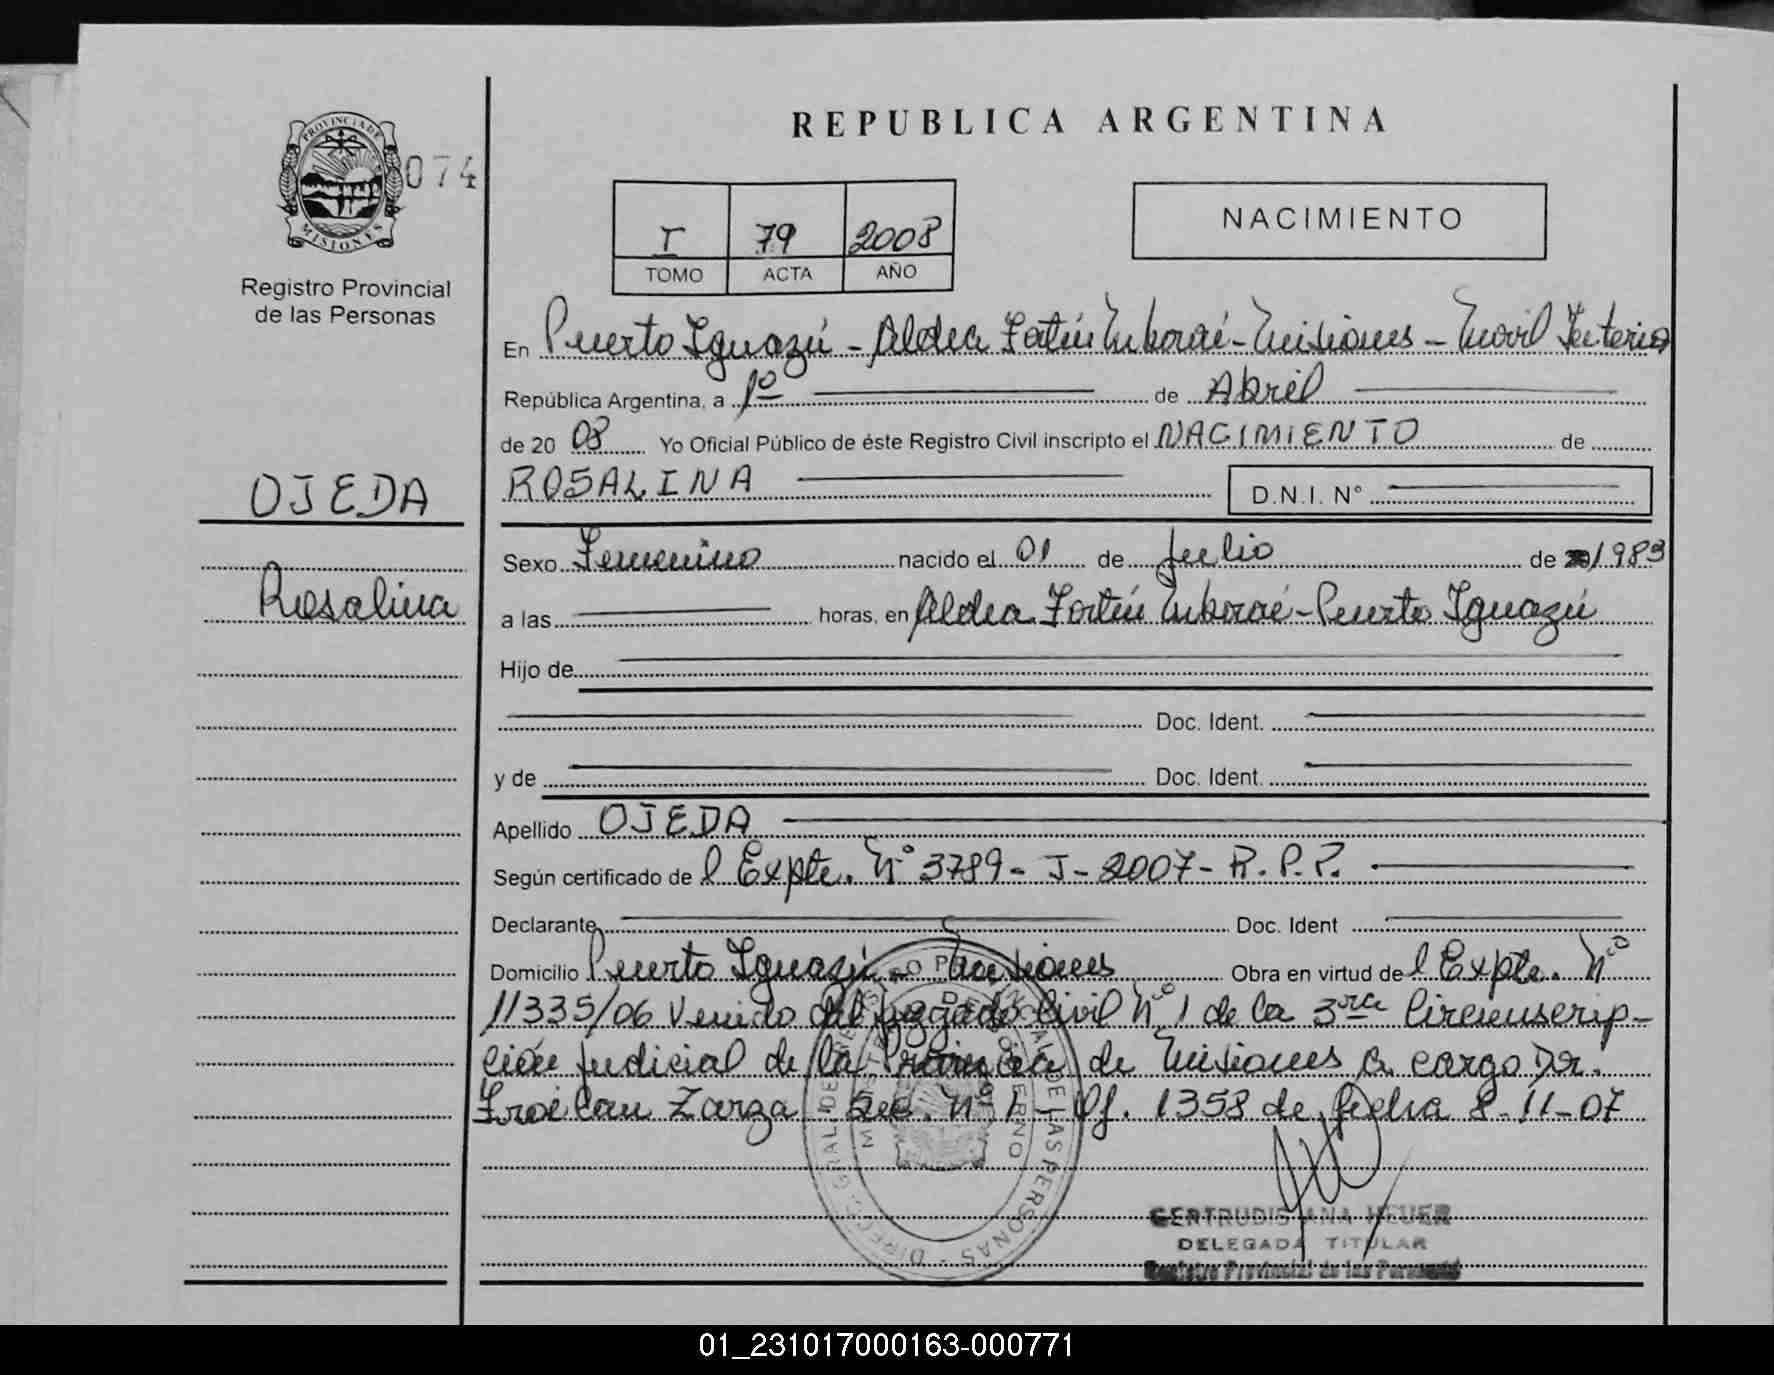 REPUBLICA ARGENTINA
PROVINCIA DE
MISIONES
074
Registro Provincial
de las Personas
I 79 2008
TOMO ACTA AÑO
NACIMIENTO
En Puerto Iguazú - Aldea Fortín Mbororé - Misiones - Móvil
República Argentina, a 1º de Abril
de 20 08 Yo Oficial Público de éste Registro Civil inscripto el NACIMIENTO de
ROSALINA D.N.I. Nº
OJEDA
Rosalina
Sexo Femenino nacido el 01 de Julio de 1983
a las horas, en Aldea Fortín Mbororé - Puerto Iguazú
Hijo de
Doc. Ident.
y de Doc. Ident.
Apellido OJEDA
Según certificado de l Expte. Nº 3789 - J - 2007 - R.P.P.
Declarante Doc. Ident
Domicilio Puerto Iguazú - Misiones Obra en virtud de l Expte. Nº
11335/06 Venido del Juzgado Civil Nº 1 de la 3ra Circunscrip-
ción Judicial de la Provincia de Misiones a cargo Dr.
Froilan Zarza Sec. Nº 1 - Of. 1358 de fecha 8-11-07
GERTRUDIS ANA HEUER
DELEGADA TITULAR
Registro Provincial de las Personas
01_231017000163-000771